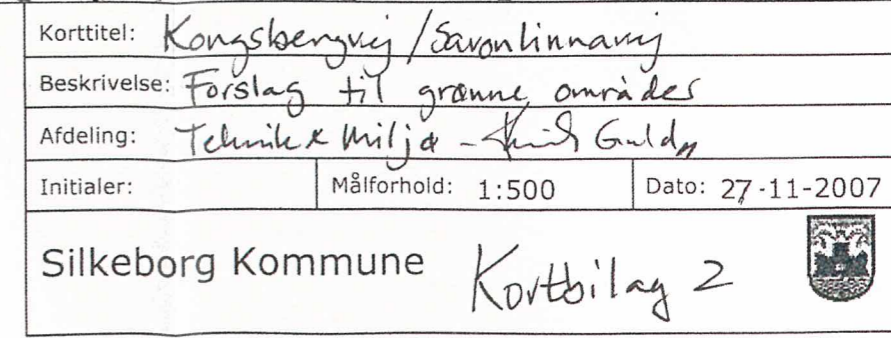 Korttitel: Kongsbergvej / Savonlinnavej
Beskrivelse: Forslag til grønne områder
Afdeling: Teknik & Miljø - Guld
Initialer: Målforhold: 1:500 Dato: 27-11-2007
Silkeborg Kommune Kortbilag 2